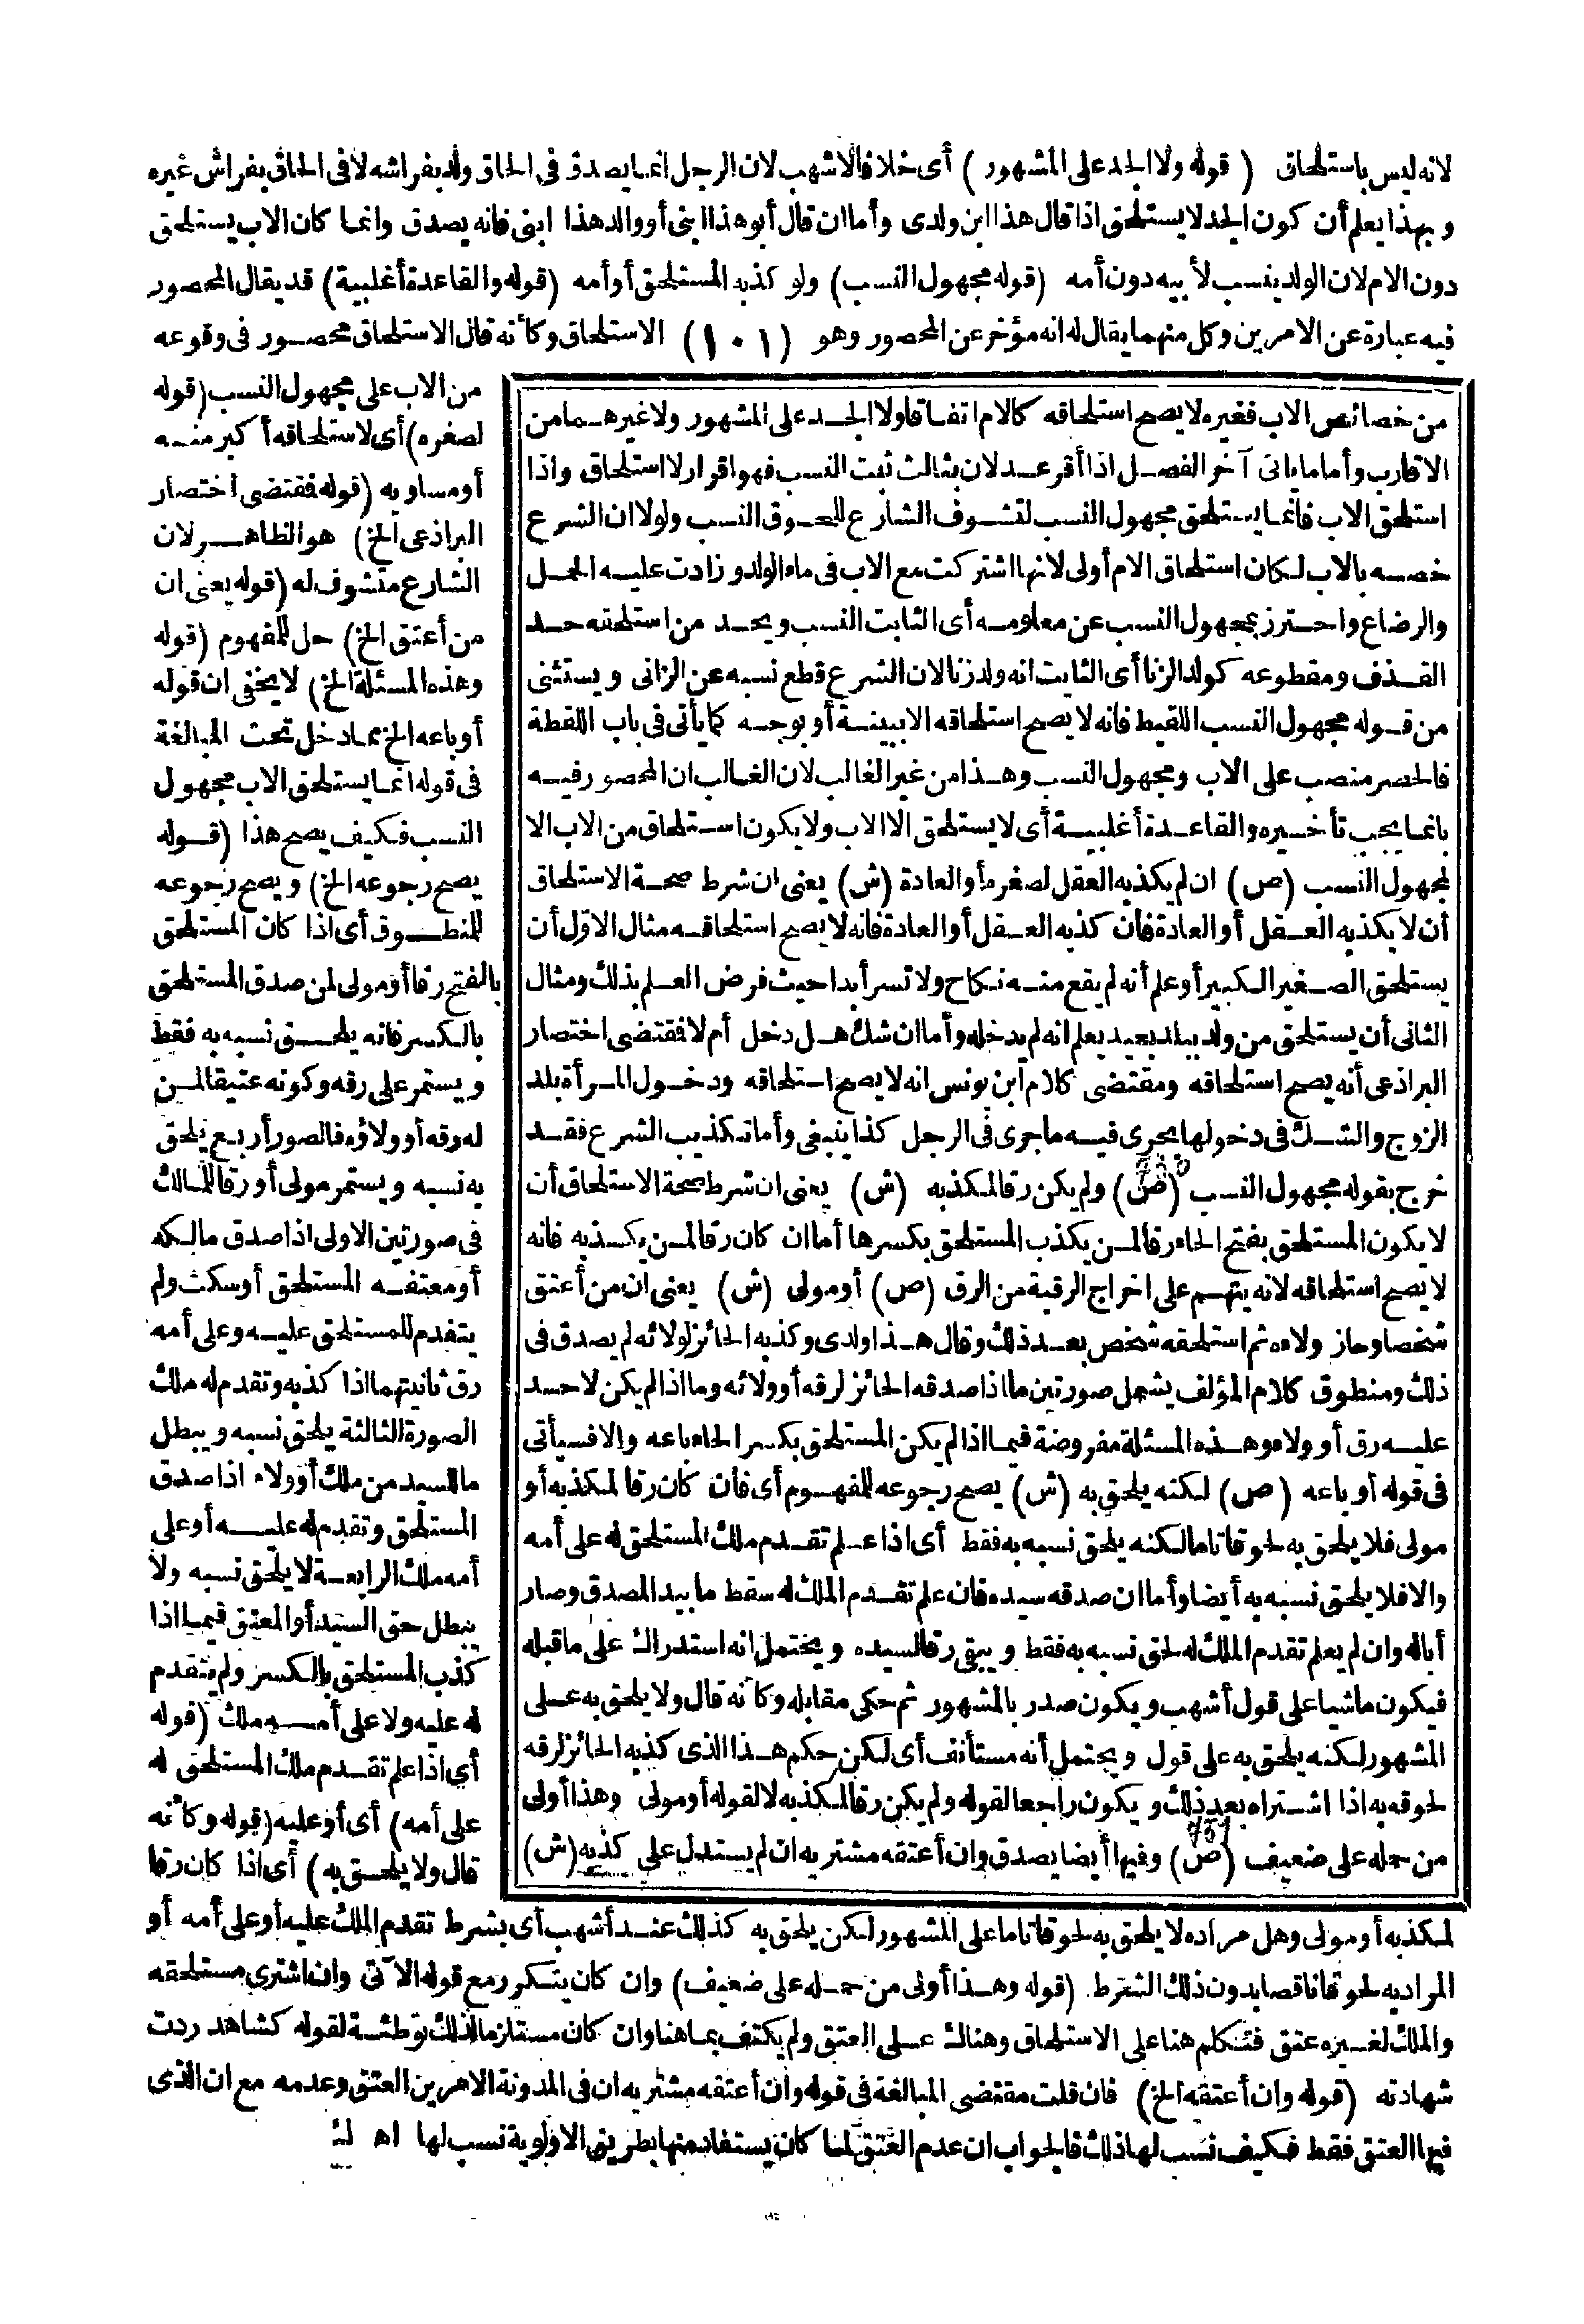 لانه ليس باستلحاق (قوله ولا الجد على المشهور) أى خلافا لاشهب لان الرجل انما يصدق فى الحاق ولد بفراشه لا فى الحاق بفراش غيره
وبهذا يعلم أن كون الجد لا يستلحق اذا قال هذا ابن ولدى وأما ان قال أبو هذا ابنى أو والد هذا ابنى فانه يصدق وانما كان الاب يستلحق
دون الام لان الولد ينسب لأبيه دون أمه (قوله مجهول النسب) ولو كذبه المستلحق أو أمه (قوله والقاعدة أغلبية) قد يقال المحصور
فيه عبارة عن الامرين وكل منهما يقال له انه مؤخر عن المحصور وهو (١٠١) الاستلحاق وكأنه قال الاستلحاق محصور فى وقوعه
من الاب على مجهول النسب (قوله
لصغره) أى لاستلحاقه أكبر منه
أو مساويه (قوله فمقتضى اختصار
البراذعى الخ) هو الظاهر لان
الشارع متشوف له (قوله يعنى ان
من أعتق الخ) حل للمفهوم (قوله
وهذه المسئلة الخ) لا يخفى ان قوله
أو باعه الخ مما دخل تحت المبالغة
فى قوله انما يستلحق الاب مجهول
النسب فكيف يصح هذا (قوله
يصح رجوعه الخ) ويصح رجوعه
للمنطوق أى اذا كان المستلحق
بالفتح رقا أو مولى لمن صدق المستلحق
بالكسر فانه يلحق نسبه به فقط
ويستمر على رقه وكونه عتيقا لمن
له رقه أو ولاؤه فالصور أربع يلحق
به نسبه ويستمر مولى أو رقا للمالك
فى صورتين الاولى اذا صدق مالكه
أو معتقه المستلحق أو سكت ولم
يتقدم للمستلحق عليه وعلى أمه
رق ثانيتهما اذا كذبه وتقدم له ملك
الصورة الثالثة يلحق نسبه ويبطل
ما للسيد من ملك أو ولاء اذا صدق
المستلحق وتقدم له عليه أو على
أمه ملك الرابعة لا يلحق نسبه ولا
يبطل حق السيد أو المعتق فيما اذا
كذب المستلحق بالكسر ولم يتقدم
له عليه ولا على أمه ملك (قوله
أى اذا علم تقدم ملك المستلحق له
على أمه) أى أو عليه (قوله وكأنه
قال ولا يلحق به) أى اذا كان رقا
من خصائص الاب فغيره لا يصح استلحاقه كالام اتفاقا ولا الجد على المشهور ولا غيرهما من
الاقارب وأما ما يأتى آخر الفصل اذا أقر عدلان بثالث ثبت النسب فهو اقرار لا استلحاق واذا
استلحق الاب فانما يستلحق مجهول النسب لتشوف الشارع للحوق النسب ولولا ان الشرع
خصه بالاب لكان استلحاق الام أولى لانها اشتركت مع الاب فى ماء الولد وزادت عليه الحمل
والرضاع واحترز بمجهول النسب عن معلومه أى الثابت النسب ويحد من استلحقه حد
القذف ومقطوعه كولد الزنا أى الثابت انه ولد زنا لان الشرع قطع نسبه عن الزانى ويستثنى
من قوله مجهول النسب اللقيط فانه لا يصح استلحاقه الا ببينة أو بوجه كما يأتى فى باب اللقطة
فالحصر منصب على الاب ومجهول النسب وهذا من غير الغالب لان الغالب ان المحصور فيه
بانما يجب تأخيره والقاعدة أغلبية أى لا يستلحق الا الاب ولا يكون استلحاق من الاب الا
لمجهول النسب (ص) ان لم يكذبه العقل لصغره أو العادة (ش) يعنى ان شرط صحة الاستلحاق
أن لا يكذبه العقل أو العادة فان كذبه العقل أو العادة فانه لا يصح استلحاقه مثال الاول أن
يستلحق الصغير الكبير أو علم أنه لم يقع منه نكاح ولا تسر أبدا حيث فرض العلم بذلك ومثال
الثانى أن يستلحق من ولد ببلد بعيد يعلم انه لم يدخله وأما ان شك هل دخل أم لا فمقتضى اختصار
البراذعى أنه يصح استلحاقه ومقتضى كلام ابن يونس انه لا يصح استلحاقه ودخول المرأة بلد
الزوج والشك فى دخولها يجرى فيه ما جرى فى الرجل كذا ينبغى وأما تكذيب الشرع فقد
خرج بقوله مجهول النسب (ص) ولم يكن رقا لمكذبه (ش) يعنى ان شرط صحة الاستلحاق أن
لا يكون المستلحق بفتح الحاء رقا لمن يكذب المستلحق بكسرها أما ان كان رقا لمن يكذبه فانه
لا يصح استلحاقه لانه يتهم على اخراج الرقبة من الرق (ص) أو مولى (ش) يعنى ان من أعتق
شخصا وحاز ولاءه ثم استلحقه شخص بعد ذلك وقال هذا ولدى وكذبه الحائز لولائه لم يصدق فى
ذلك ومنطوق كلام المؤلف يشمل صورتين ما اذا صدقه الحائز لرقه أو ولائه وما اذا لم يكن لاحد
عليه رق أو ولاء وهذه المسئلة مفروضة فيما اذا لم يكن المستلحق بكسر الحاء باعه والا فسيأتى
فى قوله أو باعه (ص) لكنه يلحق به (ش) يصح رجوعه للمفهوم أى فان كان رقا لمكذبه أو
مولى فلا يلحق به لحوقا تاما لكنه يلحق نسبه به فقط أى اذا علم تقدم ملك المستلحق له على أمه
والا فلا يلحق نسبه به أيضا وأما ان صدقه سيده فان علم تقدم الملك له سقط ما بيد المصدق وصار
أبا له وان لم يعلم تقدم الملك له لحق نسبه به فقط ويبقى رقا لسيده ويحتمل انه استدراك على ما قبله
فيكون ماشيا على قول أشهب ويكون صدر بالمشهور ثم حكى مقابله وكأنه قال ولا يلحق به على
المشهور لكنه يلحق به على قول ويحتمل أنه مستأنف أى لكن حكم هذا الذى كذبه الحائز لرقه
لحوقه به اذا اشتراه بعد ذلك ويكون راجعا لقوله ولم يكن رقا لمكذبه لا لقوله أو مولى وهذا أولى
من حمله على ضعيف (ص) وفيها أيضا يصدق وان أعتقه مشتريه ان لم يستدل على كذبه (ش)
لمكذبه أو مولى وهل مراده لا يلحق به لحوقا تاما على المشهور لكن يلحق به كذلك عند أشهب أى بشرط تقدم الملك عليه أو على أمه أو
المراد به لحوقا ناقصا بدون ذلك الشرط (قوله وهذا أولى من حمله على ضعيف) وان كان يتكرر مع قوله الآتى وان اشترى مستلحقه
والملك لغيره عتق فتكلم هنا على الاستلحاق وهناك على العتق ولم يكتف بما هنا وان كان مستلزما لذلك توطئة لقوله كشاهد ردت
شهادته (قوله وان أعتقه الخ) فان قلت مقتضى المبالغة فى قوله وان أعتقه مشتريه ان فى المدونة الامرين العتق وعدمه مع ان الذى
فيها العتق فقط فكيف نسب لها ذلك فالجواب ان عدم العتق لما كان يستفاد منها بطريق الاولوية نسب لها اه لـ